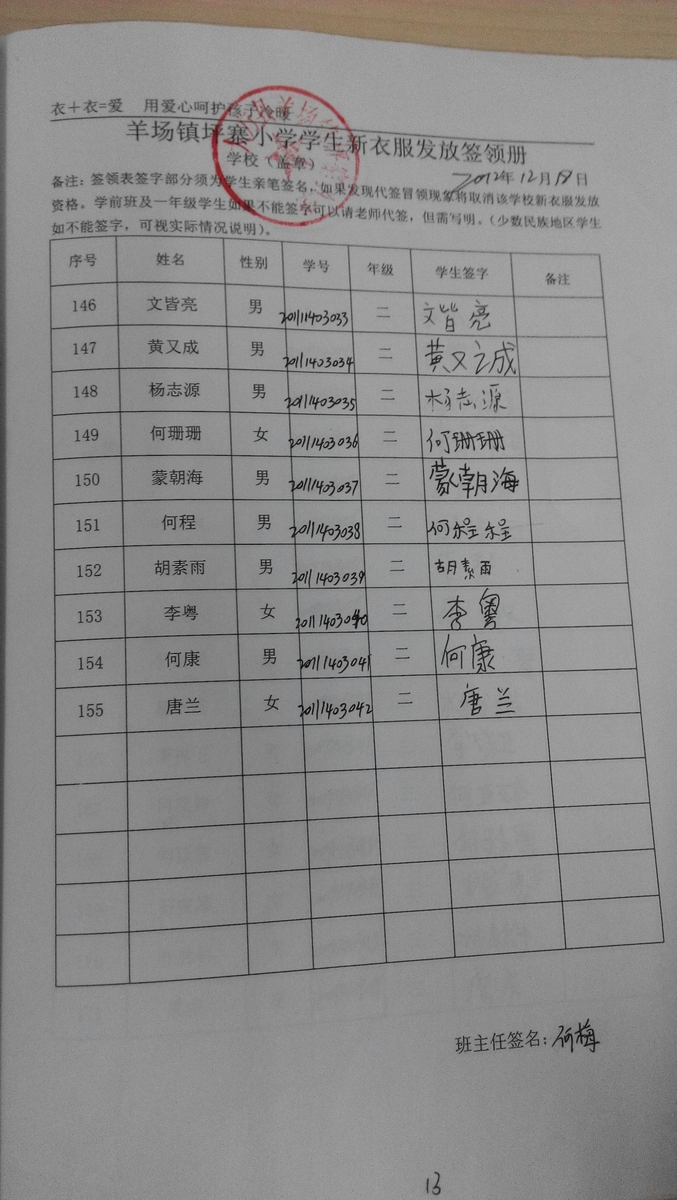 衣+衣=爱 用爱心呵护孩子冷暖
羊场镇坪寨小学学生新衣服发放签领册
学校（盖章）
2012年12月19日
备注：签领表签字部分须为学生亲笔签名，如果发现代签冒领现象将取消该学校新衣服发放
资格。学前班及一年级学生如果不能签字可以请老师代签，但需写明。（少数民族地区学生
如不能签字，可视实际情况说明）。
序号 姓名 性别 学号 年级 学生签字 备注
146 文皆亮 男 2011403033 二 文皆亮
147 黄又成 男 2011403034 二 黄又成
148 杨志源 男 2011403035 二 杨志源
149 何珊珊 女 2011403036 二 何珊珊
150 蒙朝海 男 2011403037 二 蒙朝海
151 何程 男 2011403038 二 何程程
152 胡素雨 男 2011403039 二 胡素雨
153 李粤 女 2011403040 二 李粤
154 何康 男 2011403041 二 何康
155 唐兰 女 2011403042 二 唐兰
班主任签名：何梅
13